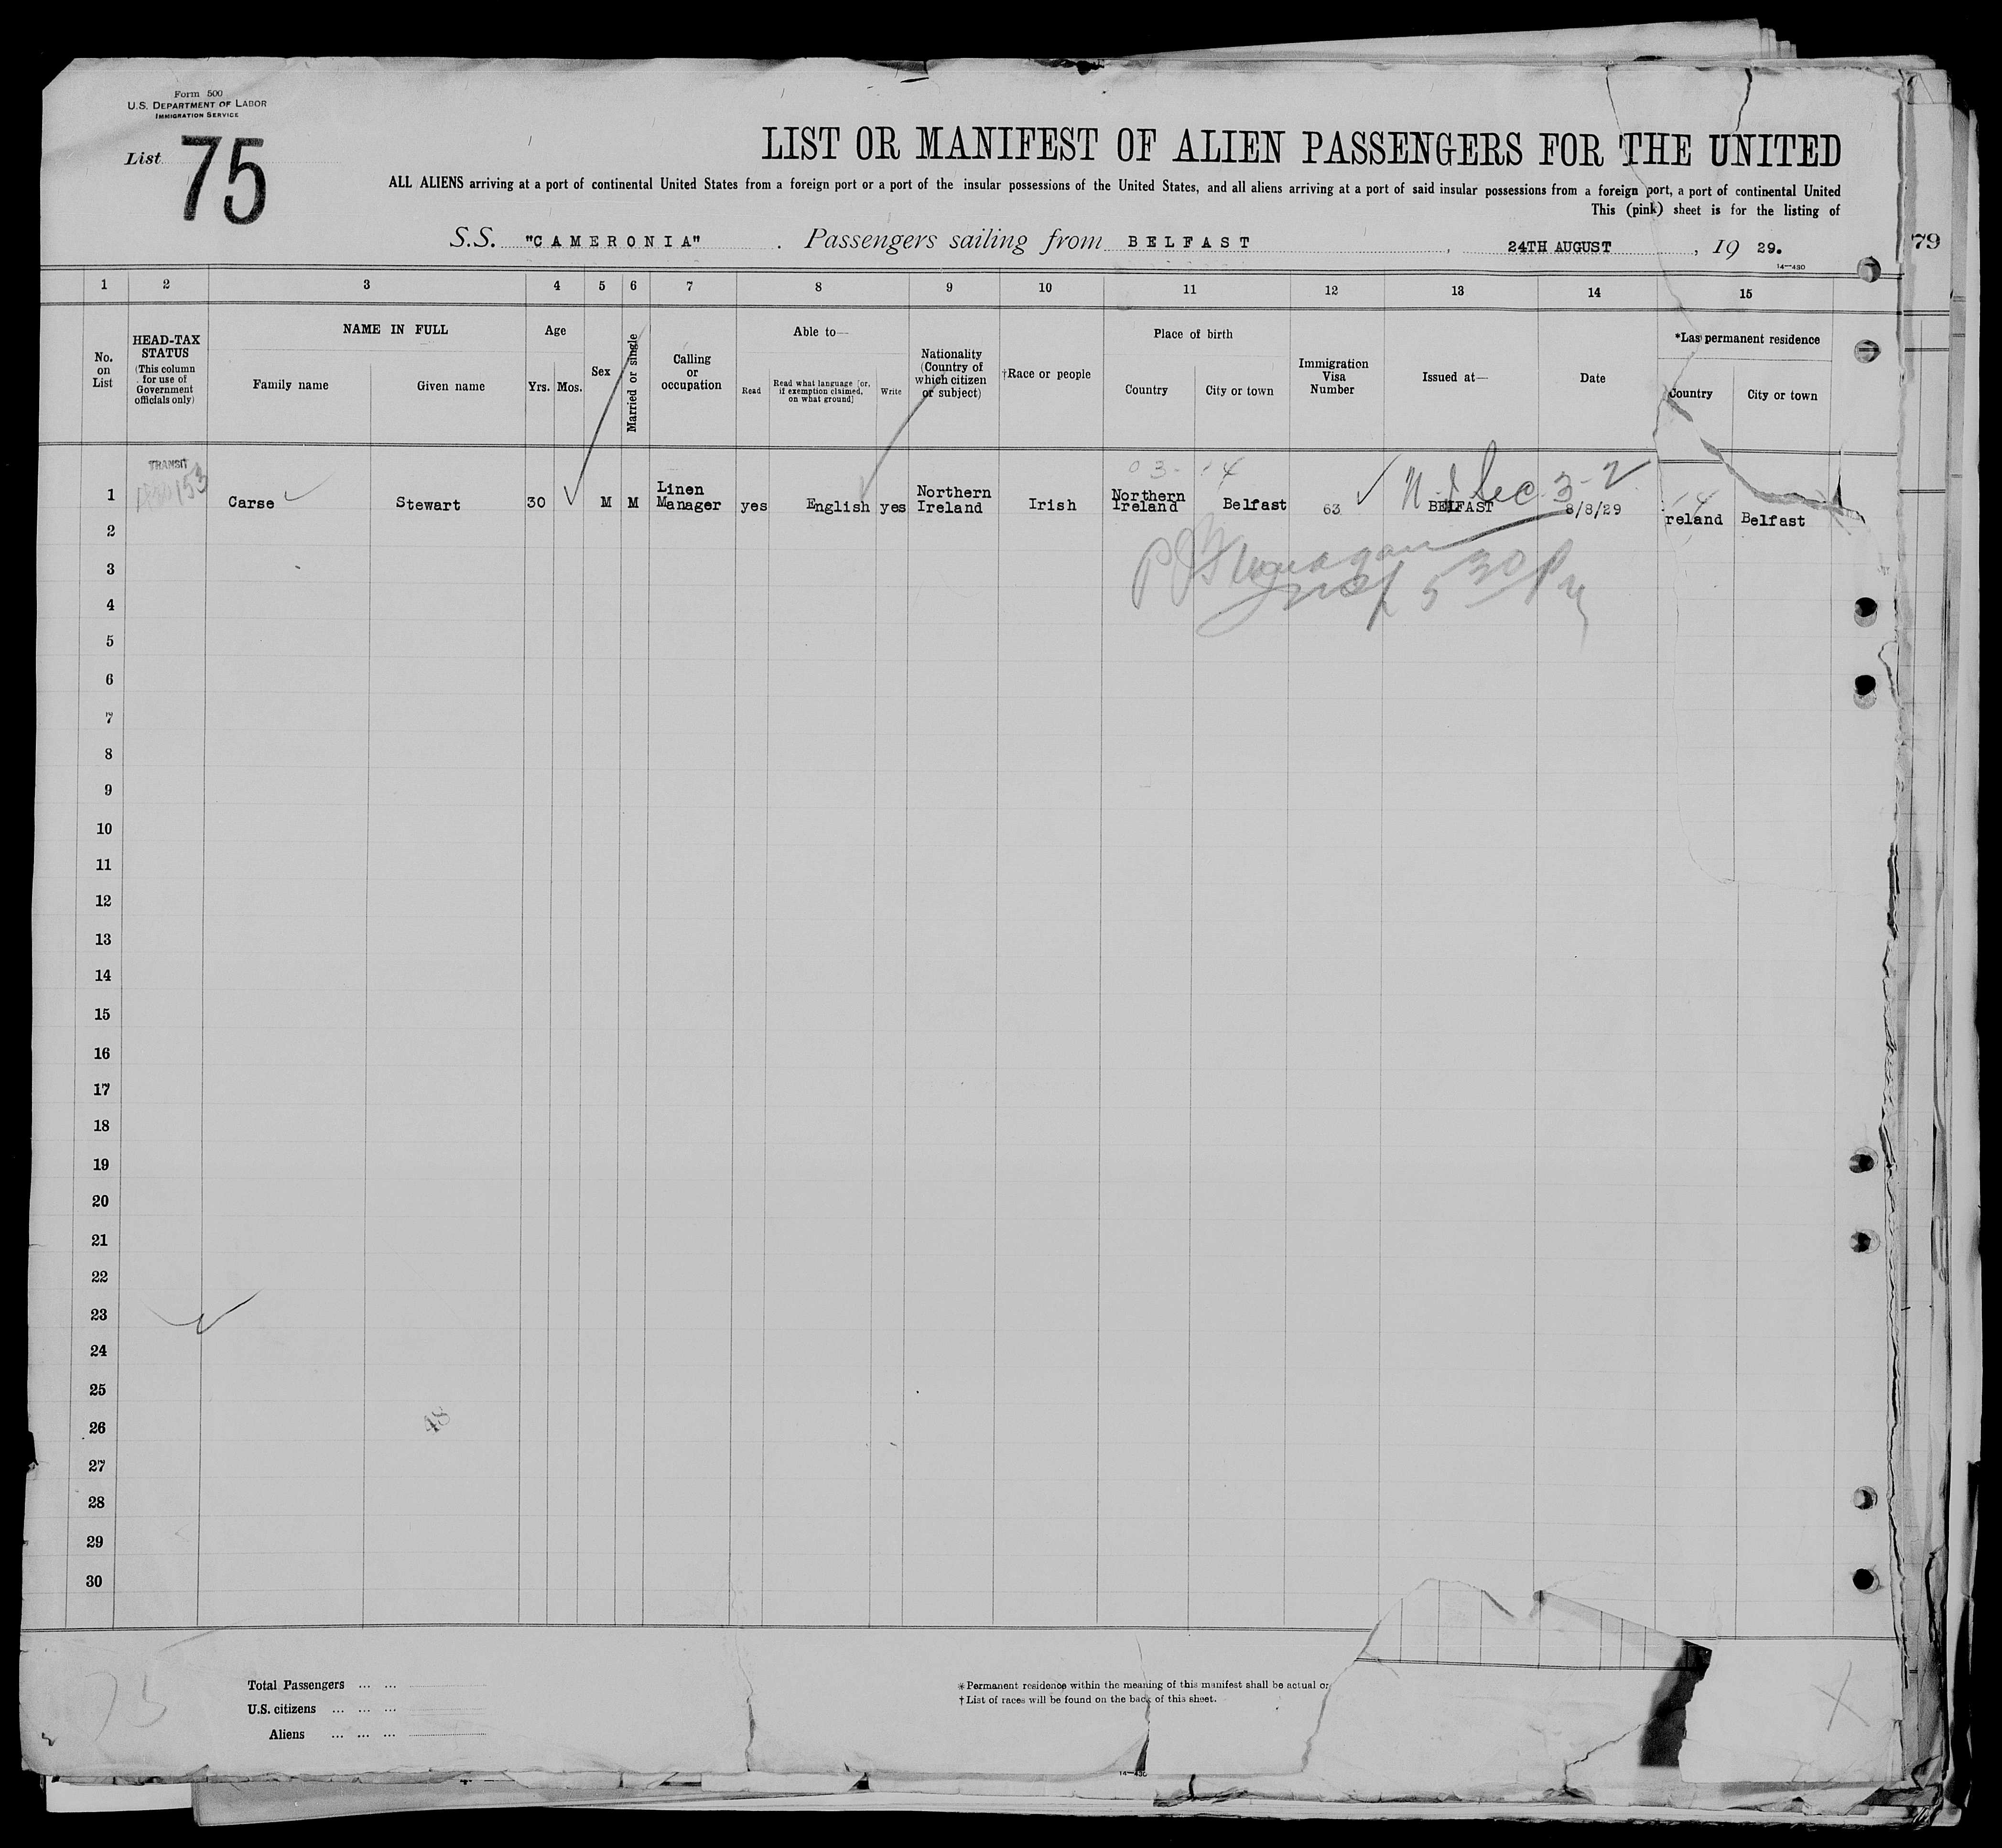 Form 500
U.S. DEPARTMENT OF LABOR
IMMIGRATION SERVICE
List 75
LIST OR MANIFEST OF ALIEN PASSENGERS FOR THE UNITED
ALL ALIENS arriving at a port of continental United States from a foreign port or a port of the insular possessions of the United States, and all aliens arriving at a port of said insular possessions from a foreign port, a port of continental United
This (pink) sheet is for the listing of
S.S. "CAMERONIA" . Passengers sailing from BELFAST , 24TH AUGUST , 19 29.
79
14—430
1 2 3 4 5 6 7 8 9 10 11 12 13 14 15
No. on List
HEAD-TAX STATUS (This column for use of Government officials only)
NAME IN FULL
Family name
Given name
Age
Yrs. Mos.
Sex
Married or single
Calling or occupation
Able to—
Read
Read what language [or, if exemption claimed, on what ground]
Write
Nationality (Country of which citizen or subject)
†Race or people
Place of birth
Country
City or town
Immigration Visa Number
Issued at—
Date
*Las permanent residence
Country
City or town
TRANSIT
153
03- 14
1 Carse Stewart 30 M M Linen Manager yes English yes Northern Ireland Irish Northern Ireland Belfast 63 BELFAST 8/8/29 reland Belfast
Sec 3-2
5 30 PM
2
3
4
5
6
7
8
9
10
11
12
13
14
15
16
17
18
19
20
21
22
23
24
25
26
27
28
29
30
48
75
Total Passengers ... ...
U.S. citizens ... ... ...
Aliens ... ... ...
*Permanent residence within the meaning of this manifest shall be actual or
†List of races will be found on the back of this sheet.
X
14—430